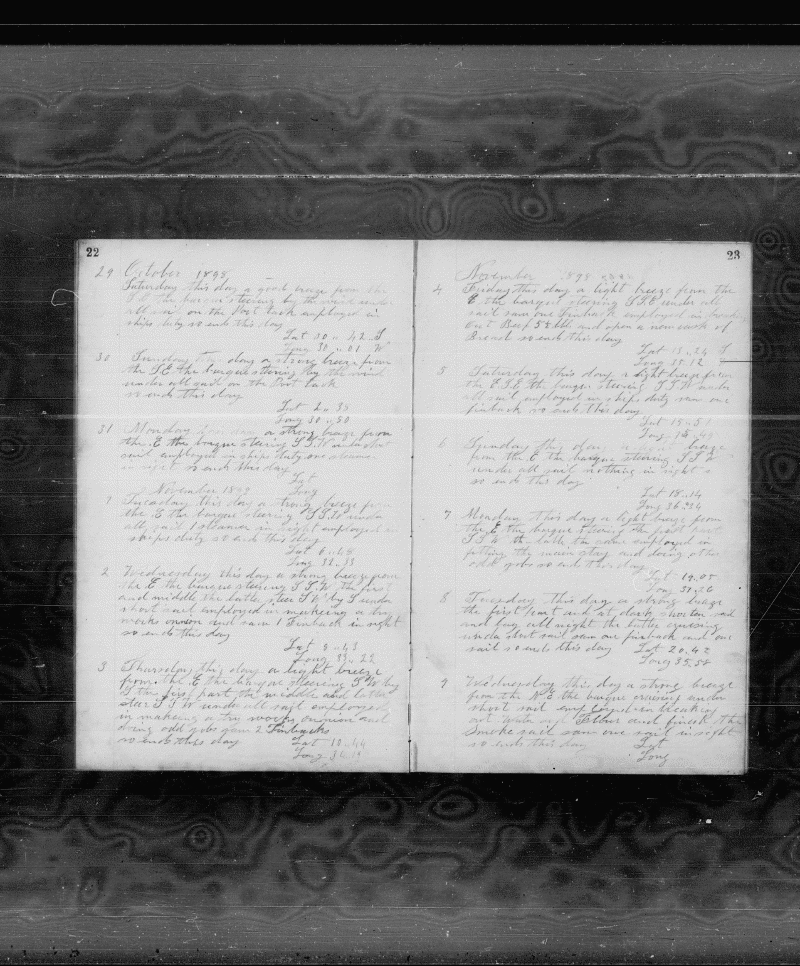 22
29 October 1898
Saturday this day a good breeze from the
S E the barque steering by the wind under
all sail on the Port tack employed in
ships duty so ends this day
Lat 00 .. 42 S
Long 30 .. 01 W
30 Sunday this day a strong breeze from
the S E the barque steering by the wind
under all sail on the Port tack
so ends this day
Lat 2 .. 35
Long 30 .. 50
31 Monday this day a strong breeze from
the E the barque steering S S W under all
sail employed in ships duty one steamer
in sight so ends this day
Lat
Long
November 1898
1 Tuesday this day a strong breeze from
the E the barque steering S S W under
all sail 1 steamer in sight employed in
ships duty so ends this day
Lat 6 .. 45
Long 32 .. 33
2 Wednesday this day a strong breeze from
the E the barque steering S S W the first
and middle the latter steer S W by S under
short sail employed in makeing a try
works and saw 1 Finback in sight
so ends this day
Lat 8 .. 43
Long 33 .. 22
3 Thursday this day a light breeze
from the E the barque steering S W by
S the first part, the middle and latter
stear S S W under all sail employed
in makeing a try works and
doing odd jobs saw 2 Finbacks
so ends this day
Lat 10 .. 44
Long 34
23
November 1898
4 Friday this day a light breeze from the
E the barque steering S S E under all
sail saw one Finback employed in
out Beef and open a new cask of
Bread so ends this day
Lat 13 .. 34 S
Long 35 12
5 Saturday this day a light breeze from
the E S E the barque steering S S W under
all sail employed in ships duty saw one
finback so ends this day
Lat 15 .. 51
Long
6 Sunday this day a breeze
from the E the barque steering S S W
under all sail nothing in sight
so ends this day
Lat 18 .. 14
Long 36 .. 34
7 Monday this day a light breeze from
the E the barque steering the first
S S W the latter the same employed in
fitting the main stay and doing other
odd jobs so ends this day
Lat 19 .. 05
Long 37 .. 26
8 Tuesday this day a strong breeze
the first part and at dark shorten sail
and lay all night the latter cruising
under short sail saw one finback and one
sail so ends this day Lat 20 .. 42
Long 38 .. 58
9 Wednesday this day a strong breeze
from the N E the barque cruising under
short sail employed in breaking
out and finish the
Smoke sail saw one sail in sight
so ends this day Lat
Long